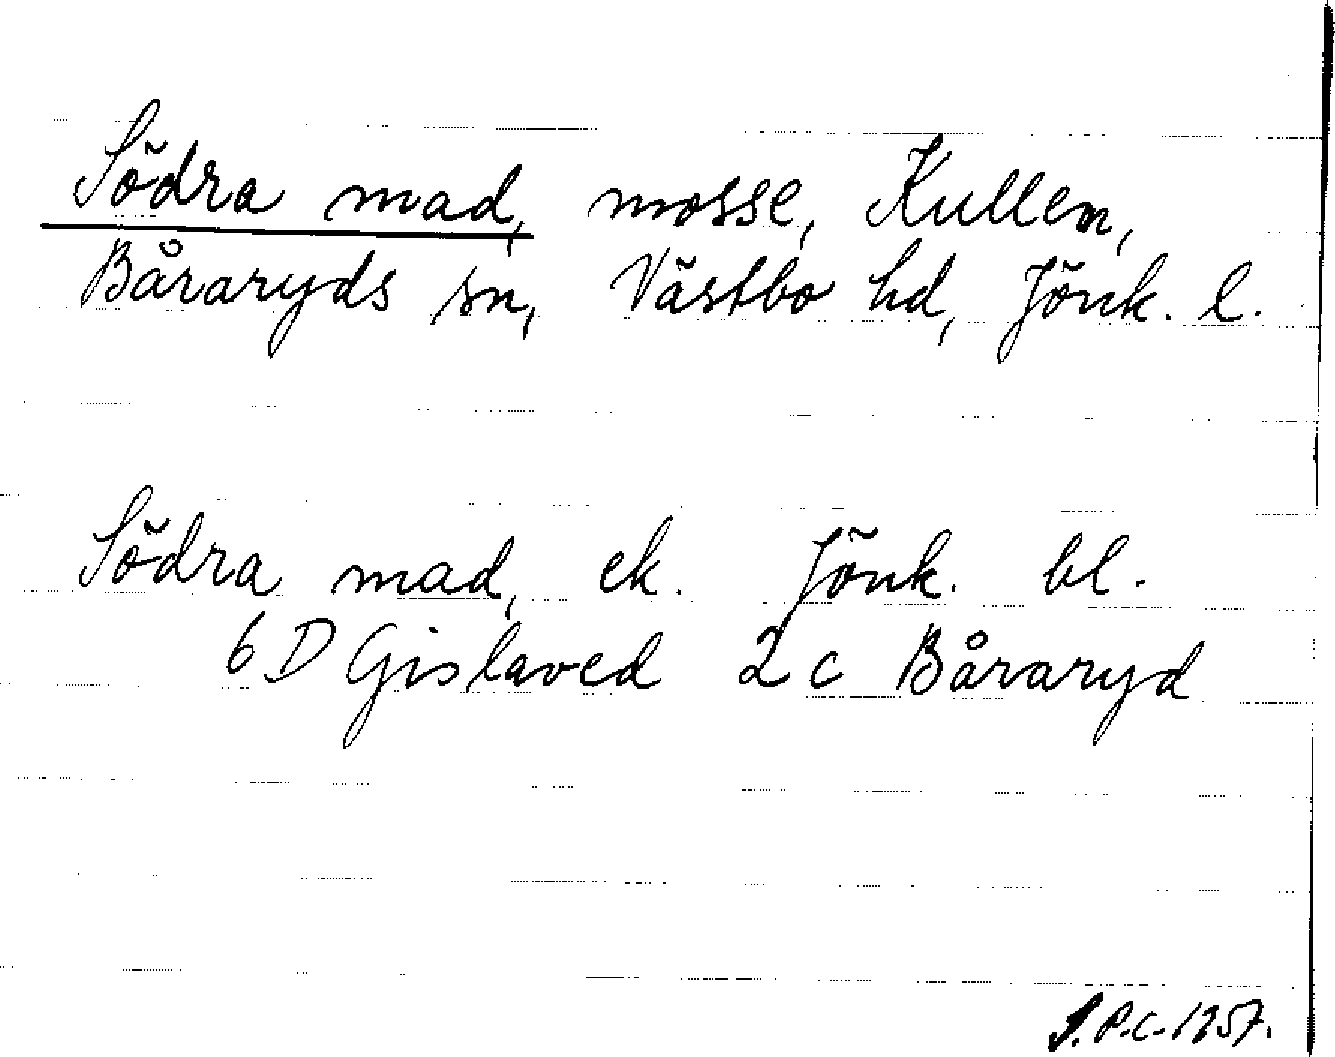 Södra mad, mosse, Kullen,
Båraryds sn, Västbo hd, Jönk. l.
Södra mad, ek. Jönk. bl.
6 D Gislaved 2 c Båraryd
P.C. 1957.